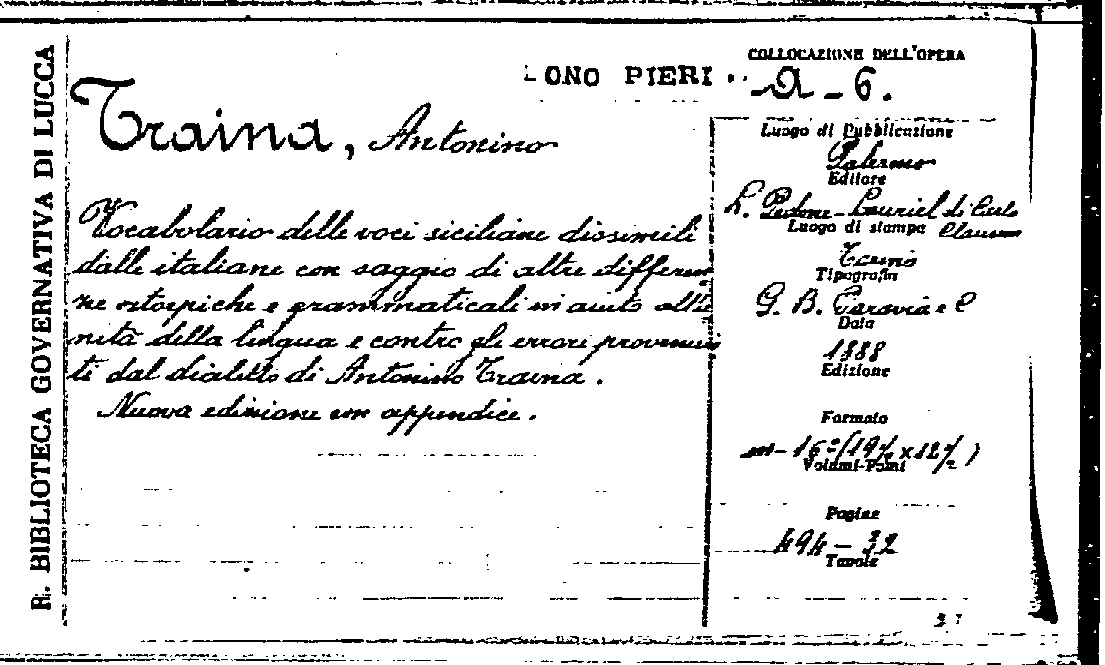 R. BIBLIOTECA GOVERNATIVA DI LUCCA
ONO PIERI
COLLOCAZIONE DELL'OPERA
A - 6.
Traina, Antonino
Vocabolario delle voci siciliane dissimili
dalle italiane con saggio di altre differen
ze ortoepiche e grammaticali in aiuto all'u
nità della lingua e contro gli errori provenien
ti dal dialetto di Antonino Traina.
Nuova edizione con appendice.
Luogo di Pubblicazione
Palermo
Editore
L. Pedone-Lauriel di Carlo
Clausen
Luogo di stampa
Torino
Tipografia
G. B. Paravia e C
Data
1888
Edizione
Formato
in-16° (19½ x 12½)
Volumi-Tomi
Pagine
494-32
Tavole